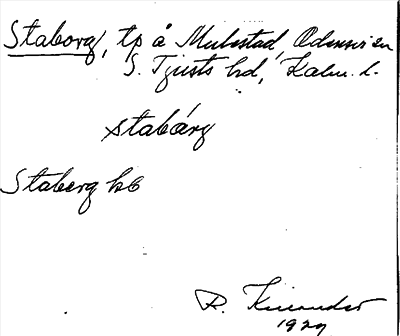 Staborg, tp å Mulestad, Odensvi sn
S. Tjusts hd, Kalm. l.
stabårg
Staberg hb
R. Kinander
1929